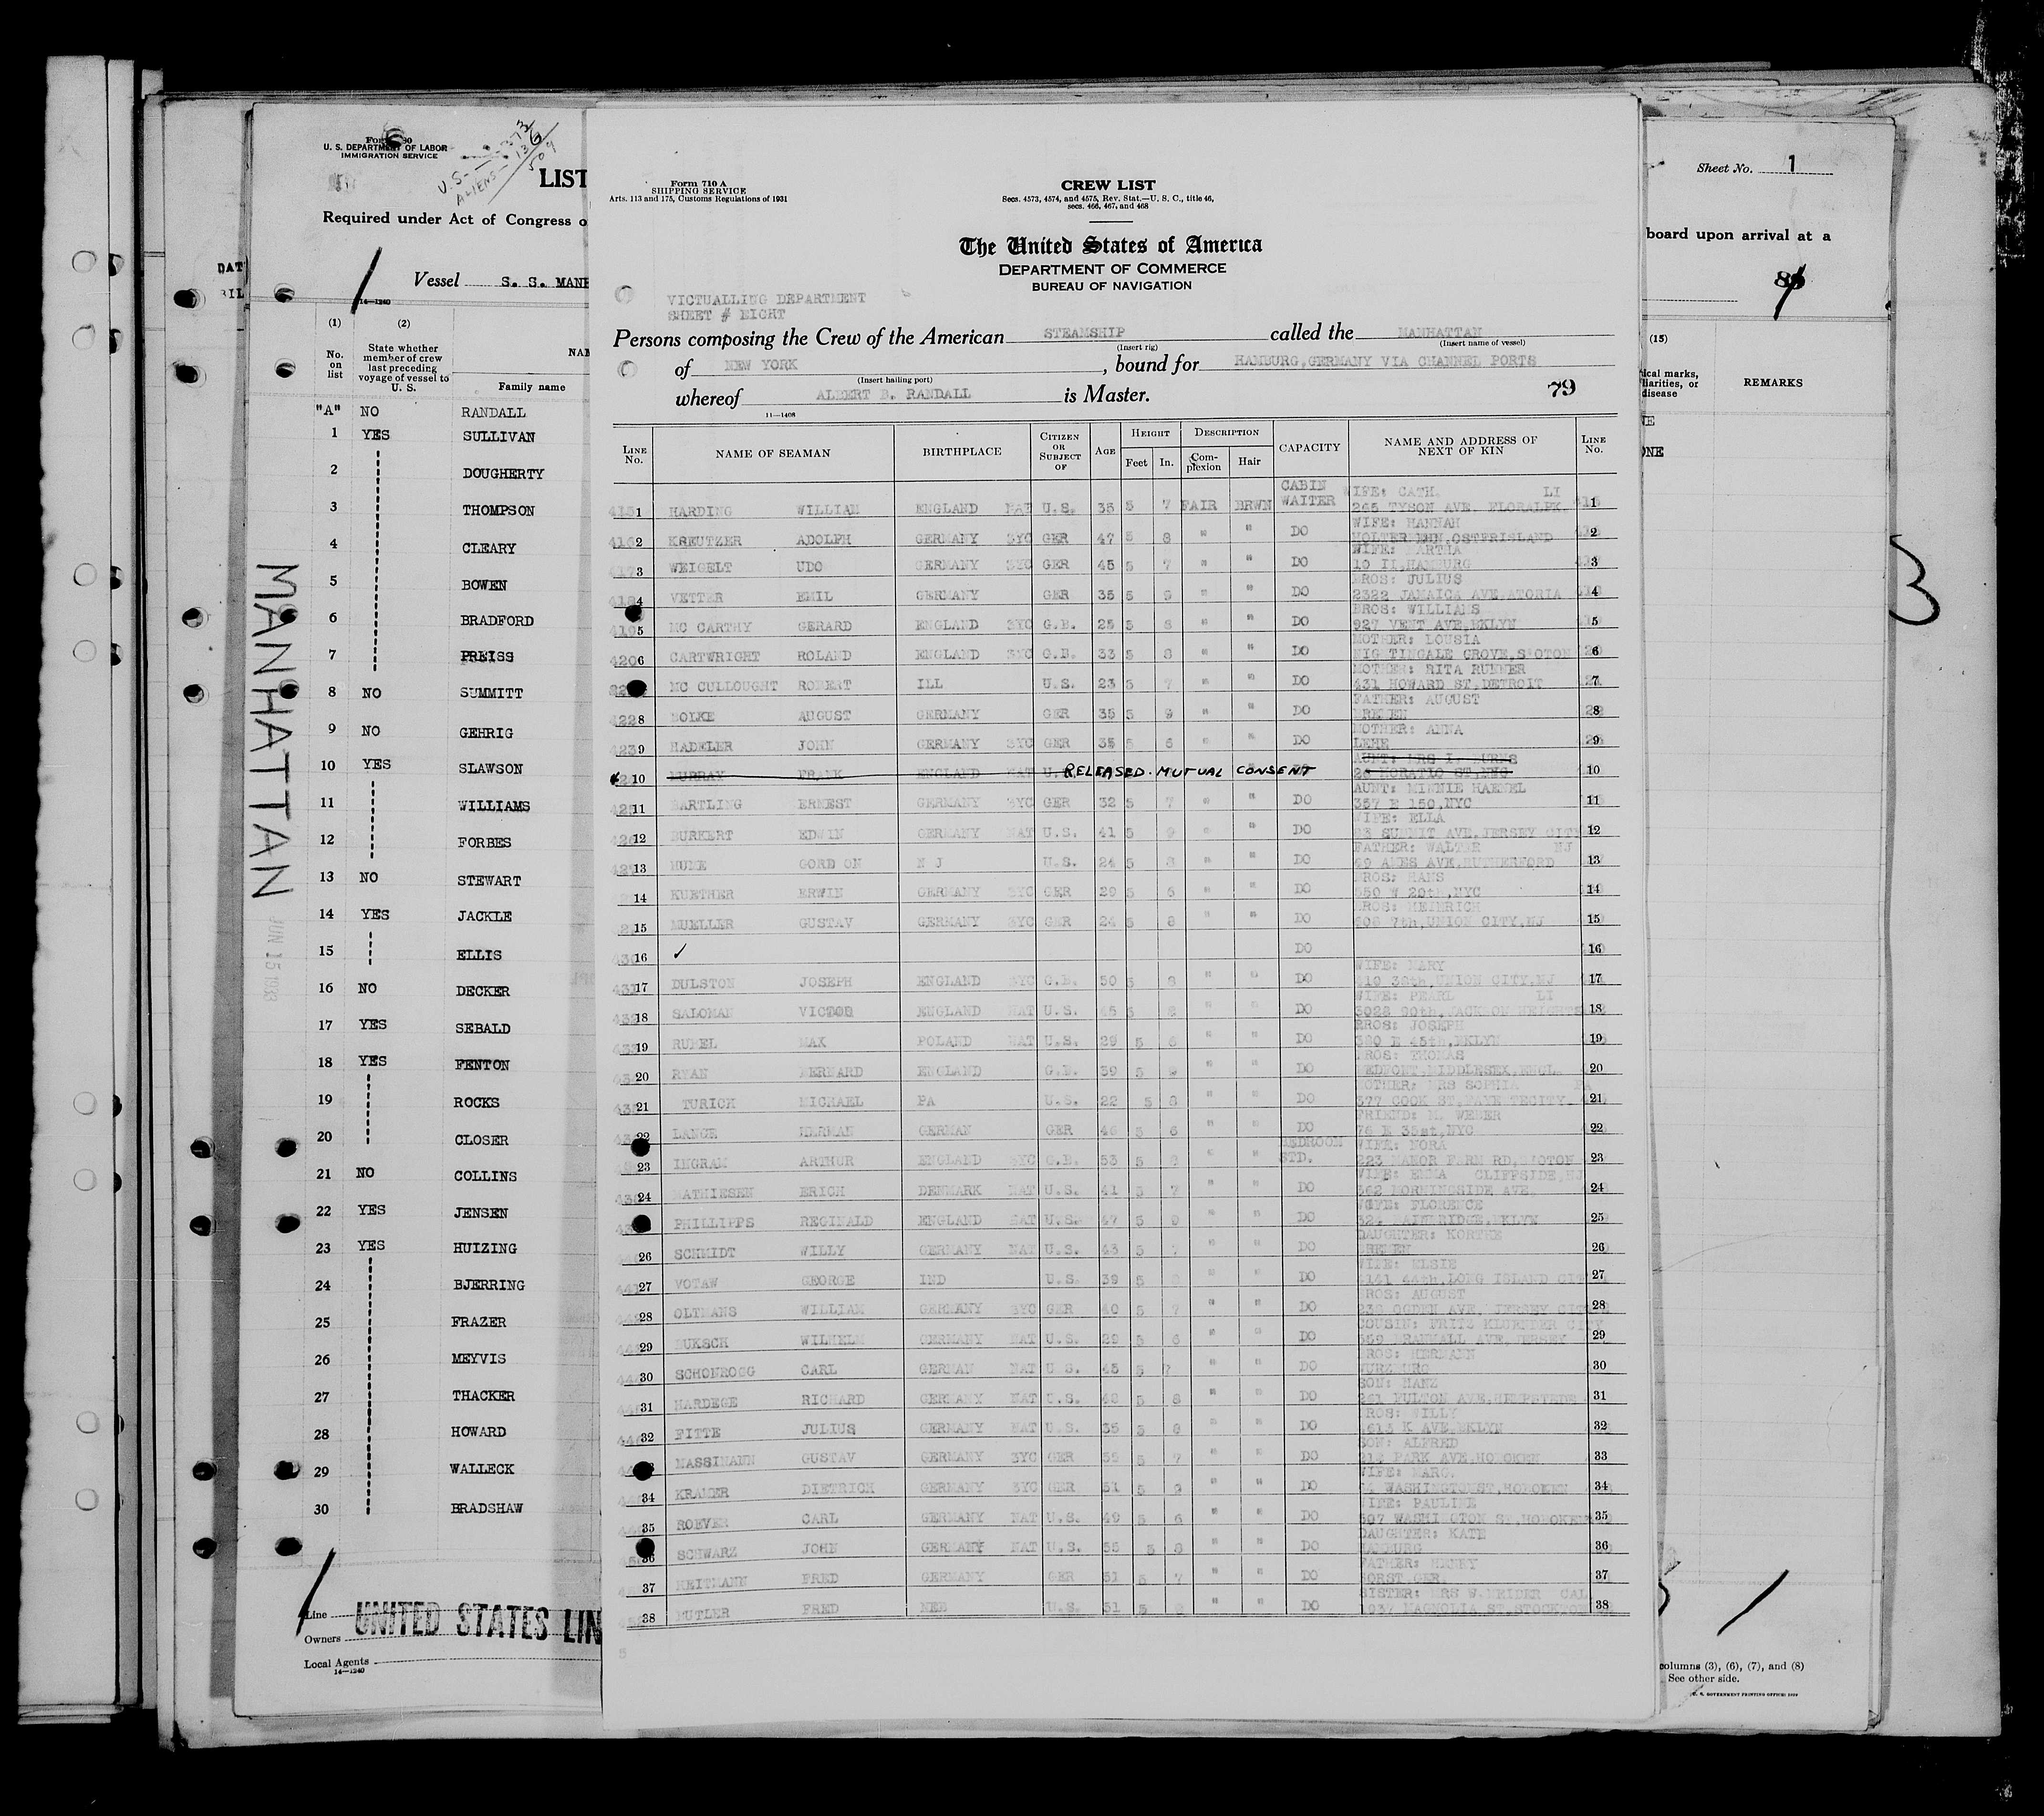 Form 710 A
SHIPPING SERVICE
Arts. 113 and 175, Customs Regulations of 1931
CREW LIST
Secs. 4573, 4574, and 4575, Rev. Stat.—U. S. C., title 46,
secs. 466, 467, and 468
The United States of America
DEPARTMENT OF COMMERCE
BUREAU OF NAVIGATION
VICTUALLING DEPARTMENT
SHEET # EIGHT
Persons composing the Crew of the American STEAMSHIP called the MANHATTAN
(Insert rig) (Insert name of vessel)
of NEW YORK , bound for HAMBURG,GERMANY VIA CHANNEL PORTS
(Insert hailing port)
whereof ALBERT B. RANDALL is Master. 79
11—1408
LINE No. NAME OF SEAMAN BIRTHPLACE CITIZEN OR SUBJECT OF AGE HEIGHT Feet In. DESCRIPTION Complexion Hair CAPACITY NAME AND ADDRESS OF NEXT OF KIN LINE No.
1 HARDING WILLIAM ENGLAND NAT U.S. 35 5 7 FAIR BRWN CABIN WAITER WIFE: CATH. LI 265 TYSON AVE. FLORALPK. 1
2 KREUTZER ADOLPH GERMANY 3YC GER 47 5 8 " " DO WIFE: HANNAH OSTFRISLAND 2
3 WEIGELT UDO GERMANY 3YC GER 45 5 7 " " DO WIFE: MARTHA 10 II,HAMBURG 3
4 VETTER EMIL GERMANY GER 35 5 9 " " DO BROS: JULIUS 2322 JAMAICA AVE.ATORIA 4
5 MC CARTHY GERARD ENGLAND 3YC G.B. 25 5 8 " " DO BROS: WILLIAMS 927 VENT AVE,BKLYN 5
6 CARTWRIGHT ROLAND ENGLAND 3YC G.B. 33 5 8 " " DO MOTHER: LOUSIA NIGHTINGALE GROVE,S'OTON 6
MC CULLOUGHT ROBERT ILL U.S. 23 5 7 " " DO MOTHER: RITA RUBNER 431 HOWARD ST,DETROIT 7
8 BOLKE AUGUST GERMANY GER 35 5 9 " " DO FATHER: AUGUST BREMEN 8
9 HADELER JOHN GERMANY 3YC GER 35 5 6 " " DO MOTHER: ANNA LEHE 9
10 MURRAY FRANK ENGLAND NAT U.S. RELEASED. MUTUAL CONSENT AUNT: MRS L. BURNS 26 HORATIO ST,NYC 10
11 BARTLING ERNEST GERMANY 3YC GER 32 5 7 " " DO AUNT: MINNIE HAENEL 357 E 150,NYC 11
12 BURKERT EDWIN GERMANY NAT U.S. 41 5 9 " " DO WIFE: ELLA SUMMIT AVE.JERSEY CITY 12
13 HUME GORD ON N J U.S. 24 5 8 " " DO FATHER: WALTER NJ 49 AMES AVE,RUTHERFORD 13
14 KUETHER ERWIN GERMANY 3YC GER 29 5 6 " " DO BROS: HANS 550 W 20th,NYC 14
15 MUELLER GUSTAV GERMANY 3YC GER 24 5 8 " " DO BROS: HEINRICH 7th,UNION CITY,NJ 15
16 ✓ DO 16
17 DULSTON JOSEPH ENGLAND 3YC G.B. 50 5 8 " " DO WIFE: MARY UNION CITY,NJ 17
18 SALOMAN VICTOR ENGLAND NAT U.S. 45 5 8 " " DO WIFE: PEARL LI 90th,JACKSON HEIGHTS 18
19 RUMEL MAX POLAND NAT U.S. 29 5 6 " " DO BROS: JOSEPH E 45th,BKLYN 19
20 RYAN BERNARD ENGLAND G.B. 39 5 " " DO BROS: THOMAS BEDFONT,MIDDLESEX,ENGL. 20
21 TURICH MICHAEL PA U.S. 22 5 8 " " DO MOTHER: MRS SOPHIA PA 377 COOK ST,FAYE TECITY. 21
22 LANGE HERMAN GERMAN GER 46 5 6 " " DO FRIEND: M. WEBER 76 E 35st,NYC 22
23 INGRAM ARTHUR ENGLAND 3YC G.B. 53 5 8 " " BEDROOM STD. WIFE: NORA 223 MANOR FARM RD,SHOTON 23
24 MATHIESEN ERICH DENMARK NAT U.S. 41 5 7 " " DO WIFE: EMMA CLIFFSIDE,NJ 362 MORNINGSIDE AVE. 24
PHILLIPPS REGINALD ENGLAND NAT U.S. 47 5 " " DO WIFE: FLORENCE BAINBRIDGE,BKLYN 25
26 SCHMIDT WILLY GERMANY NAT U.S. 43 5 7 " " DO DAUGHTER: BREMEN 26
27 VOTAW GEORGE IND U.S. 39 5 " " DO WIFE: ELSIE 4141 44th,LONG ISLAND CITY 27
28 OLTMANS WILLIAM GERMANY 3YC GER 40 5 7 " " DO BROS: AUGUST OGDEN AVE. JERSEY CITY 28
29 WILHELM GERMANY NAT U.S. 29 5 6 " " DO COUSIN: FRITZ KLUENDER CITY 359 BRAMHALL AVE.JERSEY 29
30 SCHONROGG CARL GERMAN NAT U.S. 45 5 7 " " DO BROS: HERMANN WURZBURG 30
31 HARDEGE RICHARD GERMANY NAT U.S. 48 5 8 " " DO SON: HANZ FULTON AVE,HEMPSTEDE 31
32 FITTE JULIUS GERMANY NAT U.S. 35 5 8 " " DO BROS: WILLY K AVE,BKLYN 32
MASSIMANN GUSTAV GERMANY 3YC GER 55 5 7 " " DO SON: ALFRED PARK AVE,HOBOKEN 33
34 KRAMER DIETRICH GERMANY 3YC GER 51 5 9 " " DO WIFE: MARG. WASHINGTONST,HOBOKEN 34
35 ROEVER CARL GERMANY NAT U.S. 49 5 6 " " DO WIFE: PAULINE 507 WASHINGTON ST,HOBOKEN 35
36 SCHWARZ JOHN GERMANY NAT U.S. 55 5 8 " " DO DAUGHTER: KATE HAMBURG 36
37 FRED GERMANY GER 51 5 7 " " DO FATHER: HENRY HORST,GER. 37
38 BUTLER FRED NEB U.S. 51 5 " " DO SISTER: MRS W. CAL MAGNOLIA ST,STOCKTON 38
U. S. DEPARTMENT OF LABOR
IMMIGRATION SERVICE
U.S. — 373
ALIENS — 136
509
LIST
Required under Act of Congress o
Vessel S. S. MANH
14—1240
(1) (2)
No. on list
State whether member of crew last preceding voyage of vessel to U. S.
NAM
Family name
"A" NO RANDALL
1 YES SULLIVAN
2 DOUGHERTY
3 THOMPSON
4 CLEARY
5 BOWEN
6 BRADFORD
7 PREISS
8 NO SUMMITT
9 NO GEHRIG
10 YES SLAWSON
11 WILLIAMS
12 FORBES
13 NO STEWART
14 YES JACKLE
15 ELLIS
16 NO DECKER
17 YES SEBALD
18 YES FENTON
19 ROCKS
20 CLOSER
21 NO COLLINS
22 YES JENSEN
23 YES HUIZING
24 BJERRING
25 FRAZER
26 MEYVIS
27 THACKER
28 HOWARD
29 WALLECK
30 BRADSHAW
Line
Owners UNITED STATES LIN
Local Agents
14—1240
MANHATTAN
JUN 15 1933
Sheet No. 1
board upon arrival at a
(15)
ical marks,
liarities, or
disease
REMARKS
NE
ONE
3
columns (3), (6), (7), and (8)
See other side.
U. S. GOVERNMENT PRINTING OFFICE